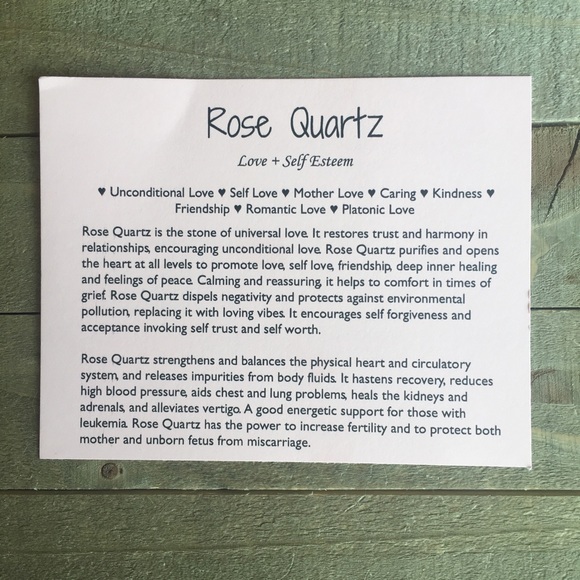 Rose Quartz
Love + Self Esteem
♥ Unconditional Love ♥ Self Love ♥ Mother Love ♥ Caring ♥ Kindness ♥
Friendship ♥ Romantic Love ♥ Platonic Love
Rose Quartz is the stone of universal love. It restores trust and harmony in
relationships, encouraging unconditional love. Rose Quartz purifies and opens
the heart at all levels to promote love, self love, friendship, deep inner healing
and feelings of peace. Calming and reassuring, it helps to comfort in times of
grief. Rose Quartz dispels negativity and protects against environmental
pollution, replacing it with loving vibes. It encourages self forgiveness and
acceptance invoking self trust and self worth.
Rose Quartz strengthens and balances the physical heart and circulatory
system, and releases impurities from body fluids. It hastens recovery, reduces
high blood pressure, aids chest and lung problems, heals the kidneys and
adrenals, and alleviates vertigo. A good energetic support for those with
leukemia. Rose Quartz has the power to increase fertility and to protect both
mother and unborn fetus from miscarriage.